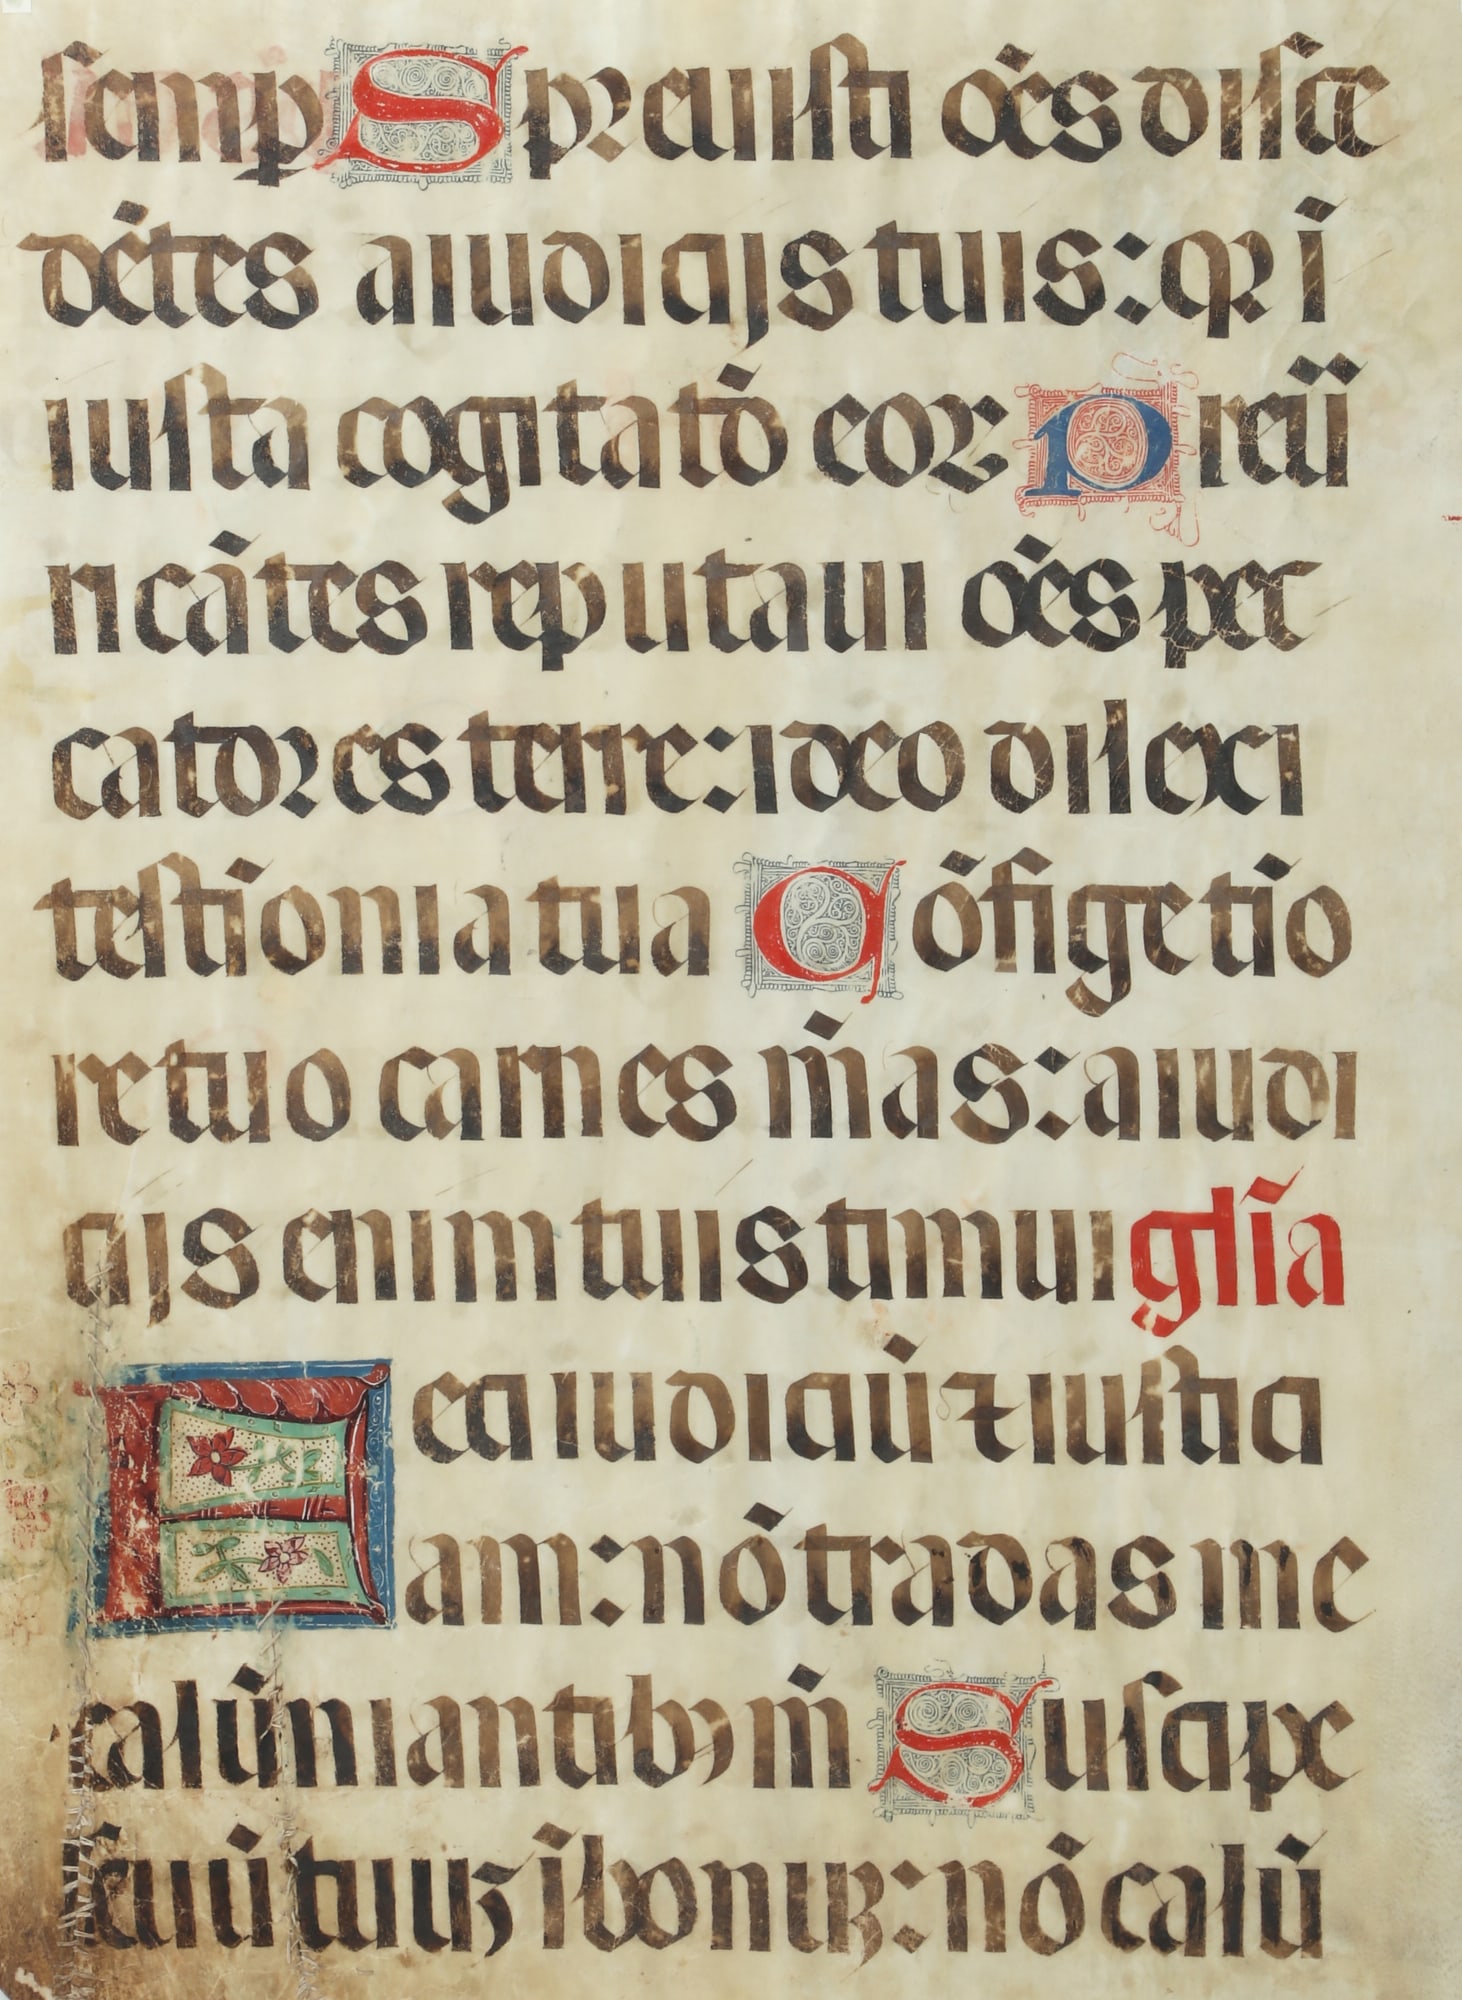 semp Spreuisti oēs disce
dētes a iudicijs tuis: qꝛ ī
iusta cogitatō eoꝝ Preuā
ricātes reputaui oēs pec
catoꝛes terre: ideo dilexi
testīonia tua Cōfige tīo
re tuo carnes m̄as: a iudi
cijs enim tuis timui glīa
Feci iudiciū ⁊ iusticī
am: nō tradas me
calūniantibꝫ m̄ Suscipe
seruū tuuꝫ ī bonuꝫ: nō calū